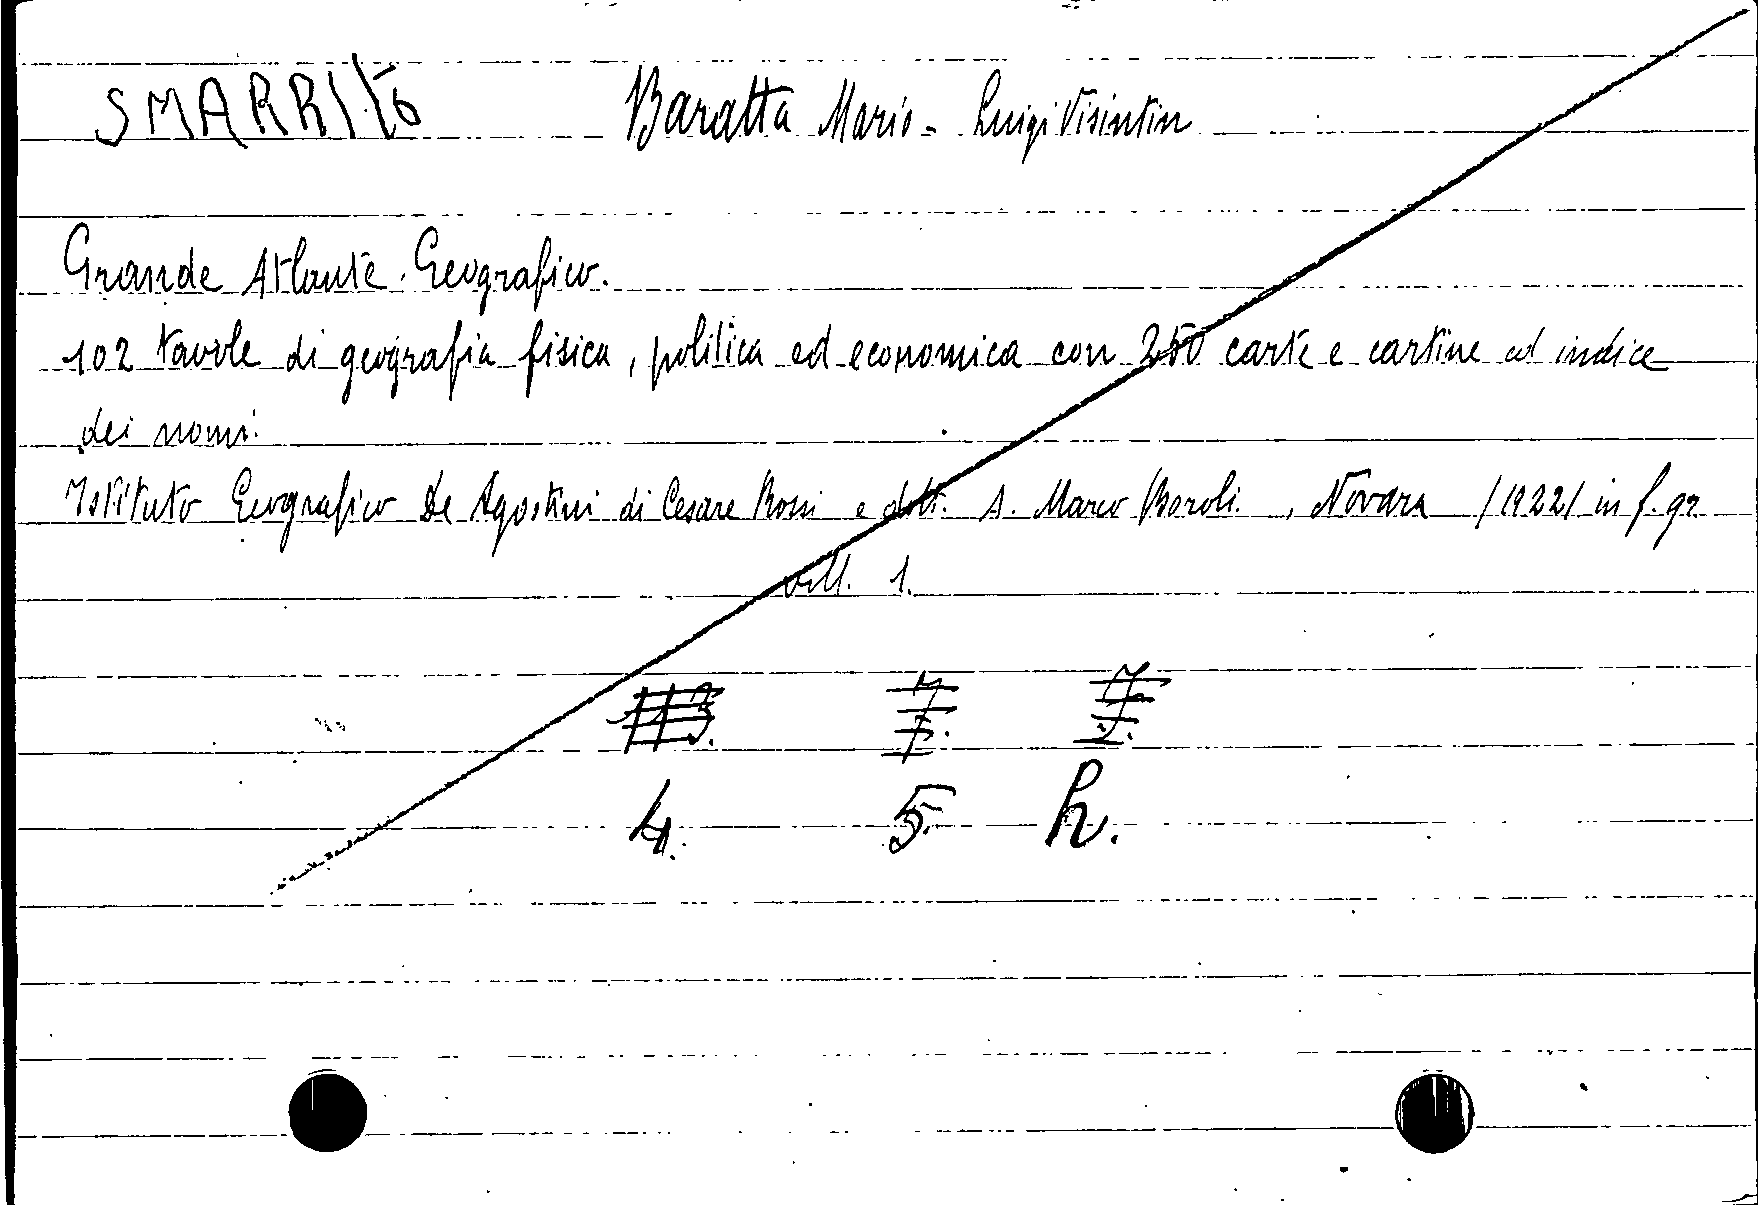 SMARRITO Baratta Mario - Luigi Visintin
Grande Atlante Geografico.
102 tavole di geografia fisica, politica ed economica con 250 carte e cartine ed indice
dei nomi.
Istituto Geografico De Agostini di Cesare Rossi e dott. A. Marco Boroli. , Novara /1922/ in f. gr
voll. 1.
113. 7.
4. 5. h.